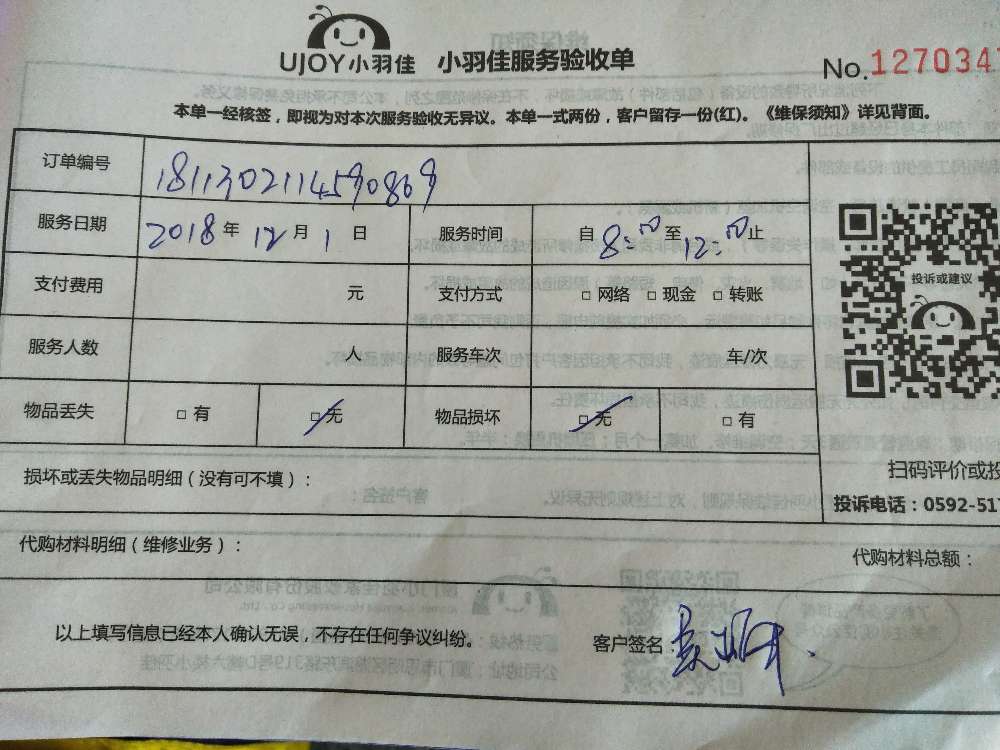 UJOY小羽佳 小羽佳服务验收单
No.1270347
本单一经核签，即视为对本次服务验收无异议。本单一式两份，客户留存一份(红)。《维保须知》详见背面。
订单编号 1811302114590869
服务日期 2018年 12月 1日 服务时间 自 8:00 至 12:00 止
支付费用 元 支付方式 □ 网络 □ 现金 □ 转账
投诉或建议
服务人数 人 服务车次 车/次
物品丢失 □ 有 □ 无 物品损坏 □ 无 □ 有
损坏或丢失物品明细（没有可不填）：
扫码评价或投
投诉电话：0592-517
代购材料明细（维修业务）：
代购材料总额：
以上填写信息已经本人确认无误，不存在任何争议纠纷。 客户签名：